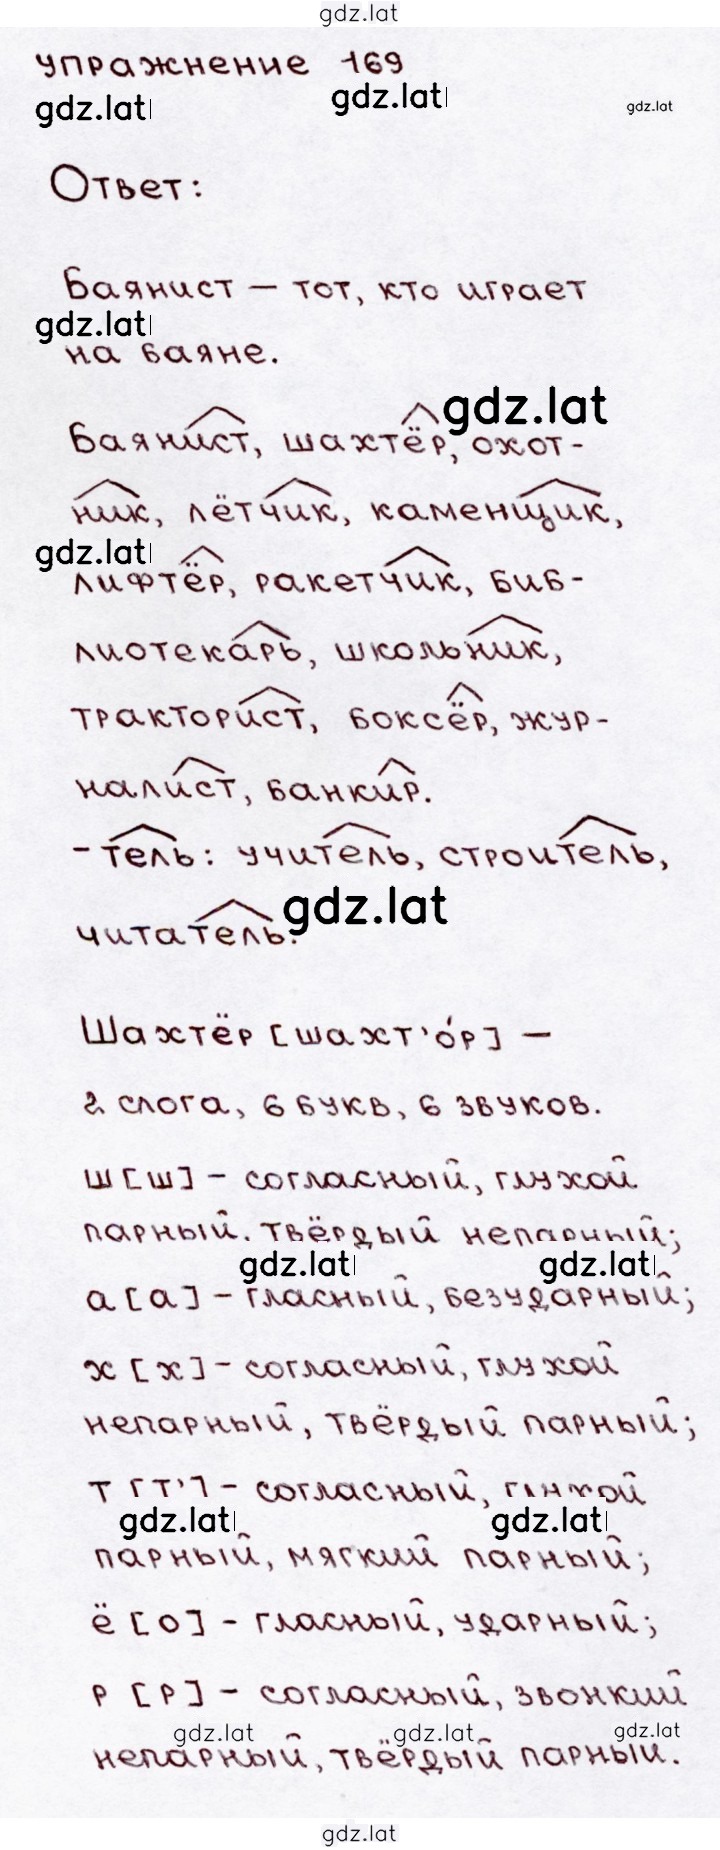 gdz.lat
упражнение 169
gdz.lat gdz.lat gdz.lat
Ответ:
Баянист – тот, кто играет
gdz.lat
на баяне.
gdz.lat
Баянист, шахтёр, охот-
ник, лётчик, каменщик,
gdz.lat
лифтёр, ракетчик, биб-
лиотекарь, школьник,
тракторист, боксёр, жур-
налист, банкир.
-тель: учитель, строитель,
gdz.lat
читатель.
Шахтёр [шахт'о́р] –
2 слога, 6 букв, 6 звуков.
ш [ш] – согласный, глухой
парный, твёрдый непарный;
gdz.lat gdz.lat
а [а] – гласный, безударный;
х [х] – согласный, глухой
непарный, твёрдый парный;
т [т'] – согласный, глухой
gdz.lat gdz.lat
парный, мягкий парный;
ё [о] – гласный, ударный;
р [р] – согласный, звонкий
gdz.lat gdz.lat gdz.lat
непарный, твёрдый парный.
gdz.lat